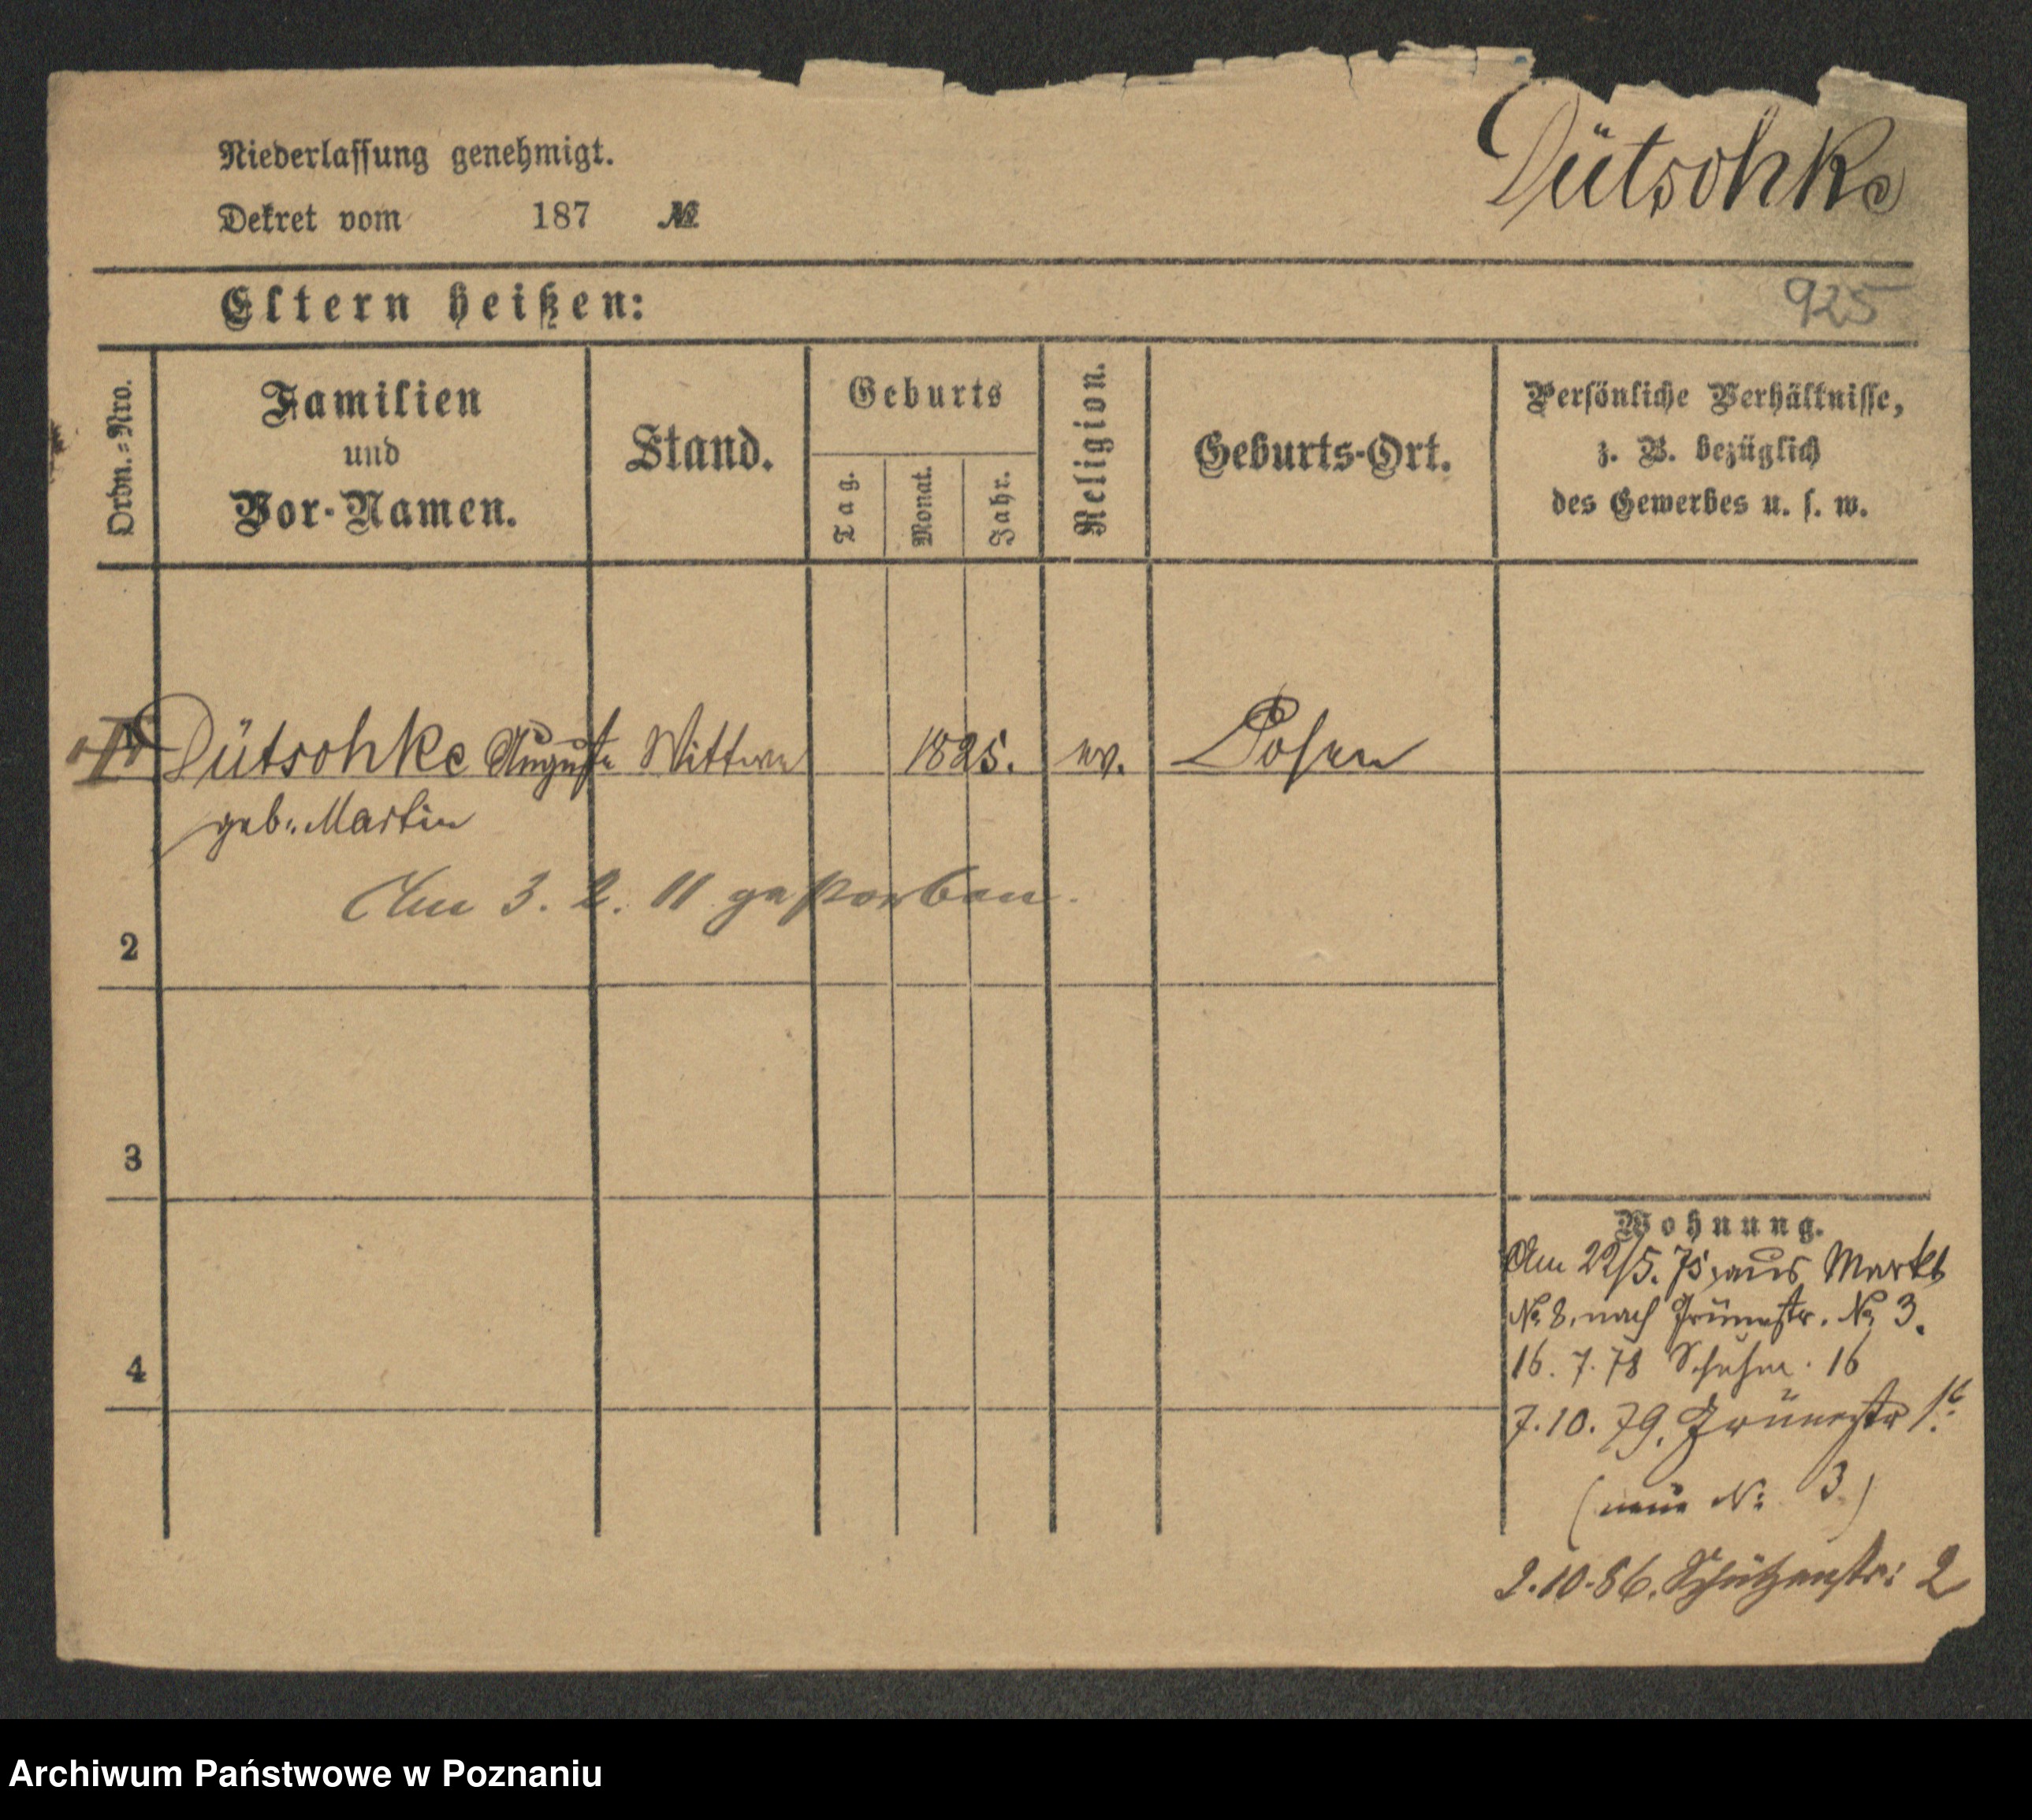 Niederlassung genehmigt.
Dekret vom 187 №
Dütschke
925
Eltern heißen:
Ordn.=Nro.
Familien
und
Vor-Namen.
Stand.
Geburts
Tag.
Monat.
Jahr.
Religion.
Geburts-Ort.
Persönliche Verhältnisse,
z. B. bezüglich
des Gewerbes u. s. w.
Dütschke Auguste Wittwe 1825. ev. Posen
geb: Martin
Am 3. 2. 11 gestorben.
2
3
4
Wohnung.
Am 22/5. 75, aus Markt
№ 8, nach Grünestr. № 3.
16. 7. 78 16
7. 10. 79. Grünestr
(neue №: 3)
2. 10. 86. Schützenstr: 2
Archiwum Państwowe w Poznaniu